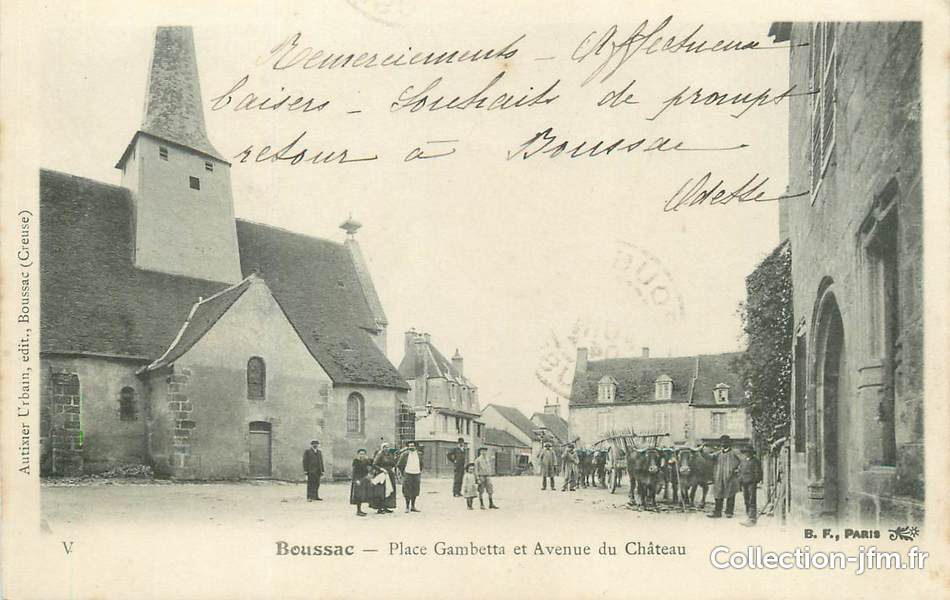 Remerciements - Affectueux
baisers - Souhaits de prompt
retour à Boussac
Odette
Autixier Urbain, edit., Boussac (Creuse)
V.
Boussac — Place Gambetta et Avenue du Château
B. F., PARIS
Collection-jfm.fr